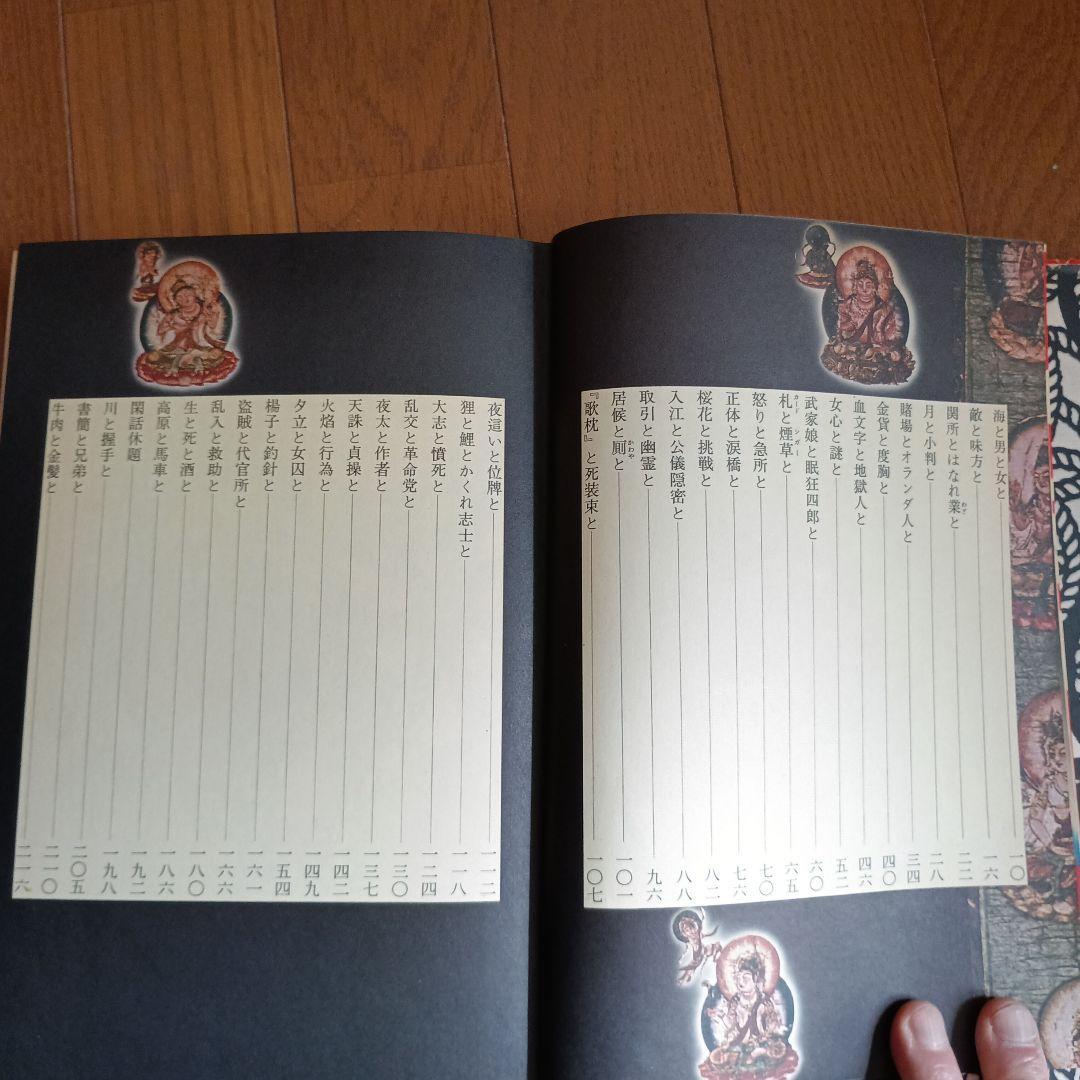 海と男と女と 一〇
敵と味方と 一六
関所とはなれ業と 二二
わざ
月と小判と 二八
賭場とオランダ人と 三四
金貨と度胸と 四〇
血文字と地獄人と 四六
女心と謎と 五二
武家娘と眠狂四郎と 六〇
札と煙草と 六五
カード シガー
怒りと急所と 七〇
正体と涙橋と 七六
桜花と挑戦と 八二
入江と公儀隠密と 八八
取引と幽霊と 九六
居候と厠と 一〇一
かわや
『歌枕』と死装束と 一〇七
夜這いと位牌と 一一二
狸と鯉とかくれ志士と 一一八
大志と憤死と 一二四
乱交と革命党と 一三〇
夜太と作者と 一三七
天誅と貞操と 一四二
火焔と行為と 一四九
夕立と女囚と 一五四
楊子と釣針と 一六一
盗賊と代官所と 一六六
乱入と救助と 一八〇
生と死と酒と 一八六
高原と馬車と 一九二
閑話休題 一九八
川と握手と 二〇五
書簡と兄弟と 二一〇
牛肉と金髪と 二一六